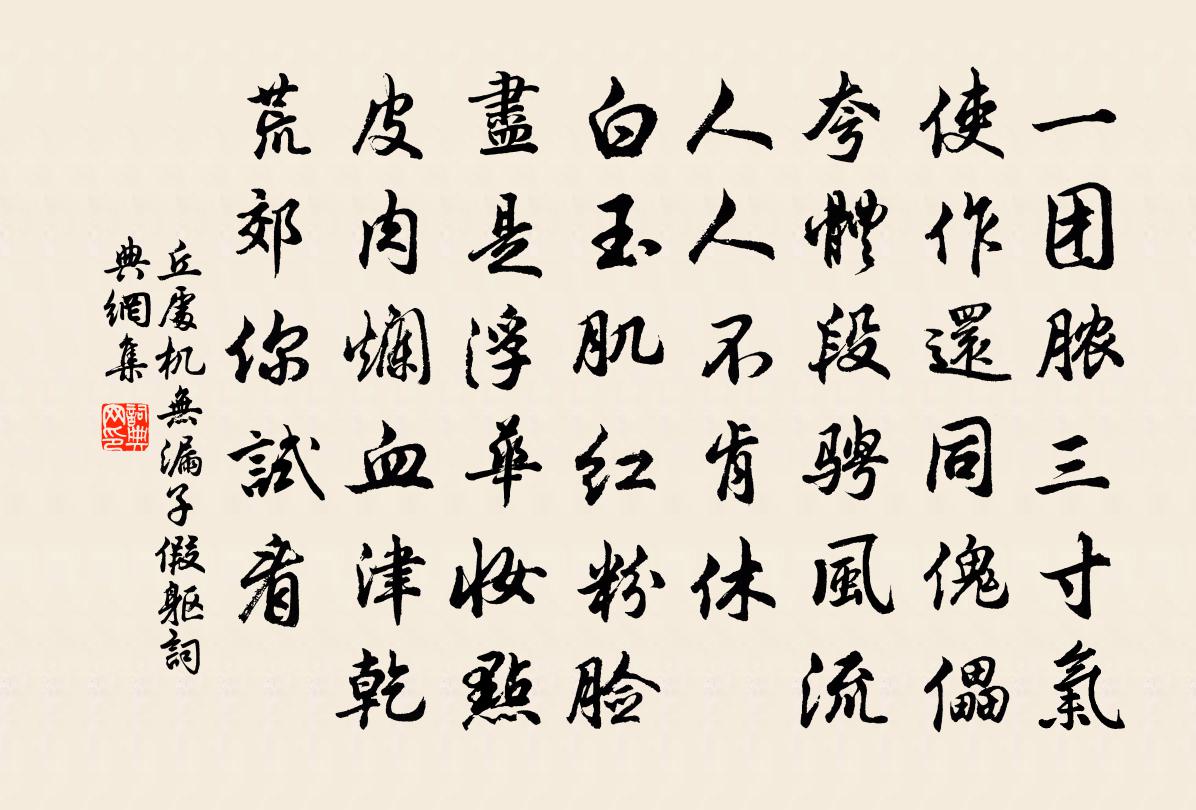 一团脓三寸氣
使作還同傀儡
夸體段骋風流
人人不肯休
白玉肌红粉脸
盡是浮華妝點
皮肉爛血津乾
荒郊你試看
丘處机無漏子假軀詞
典網集
詞典网印